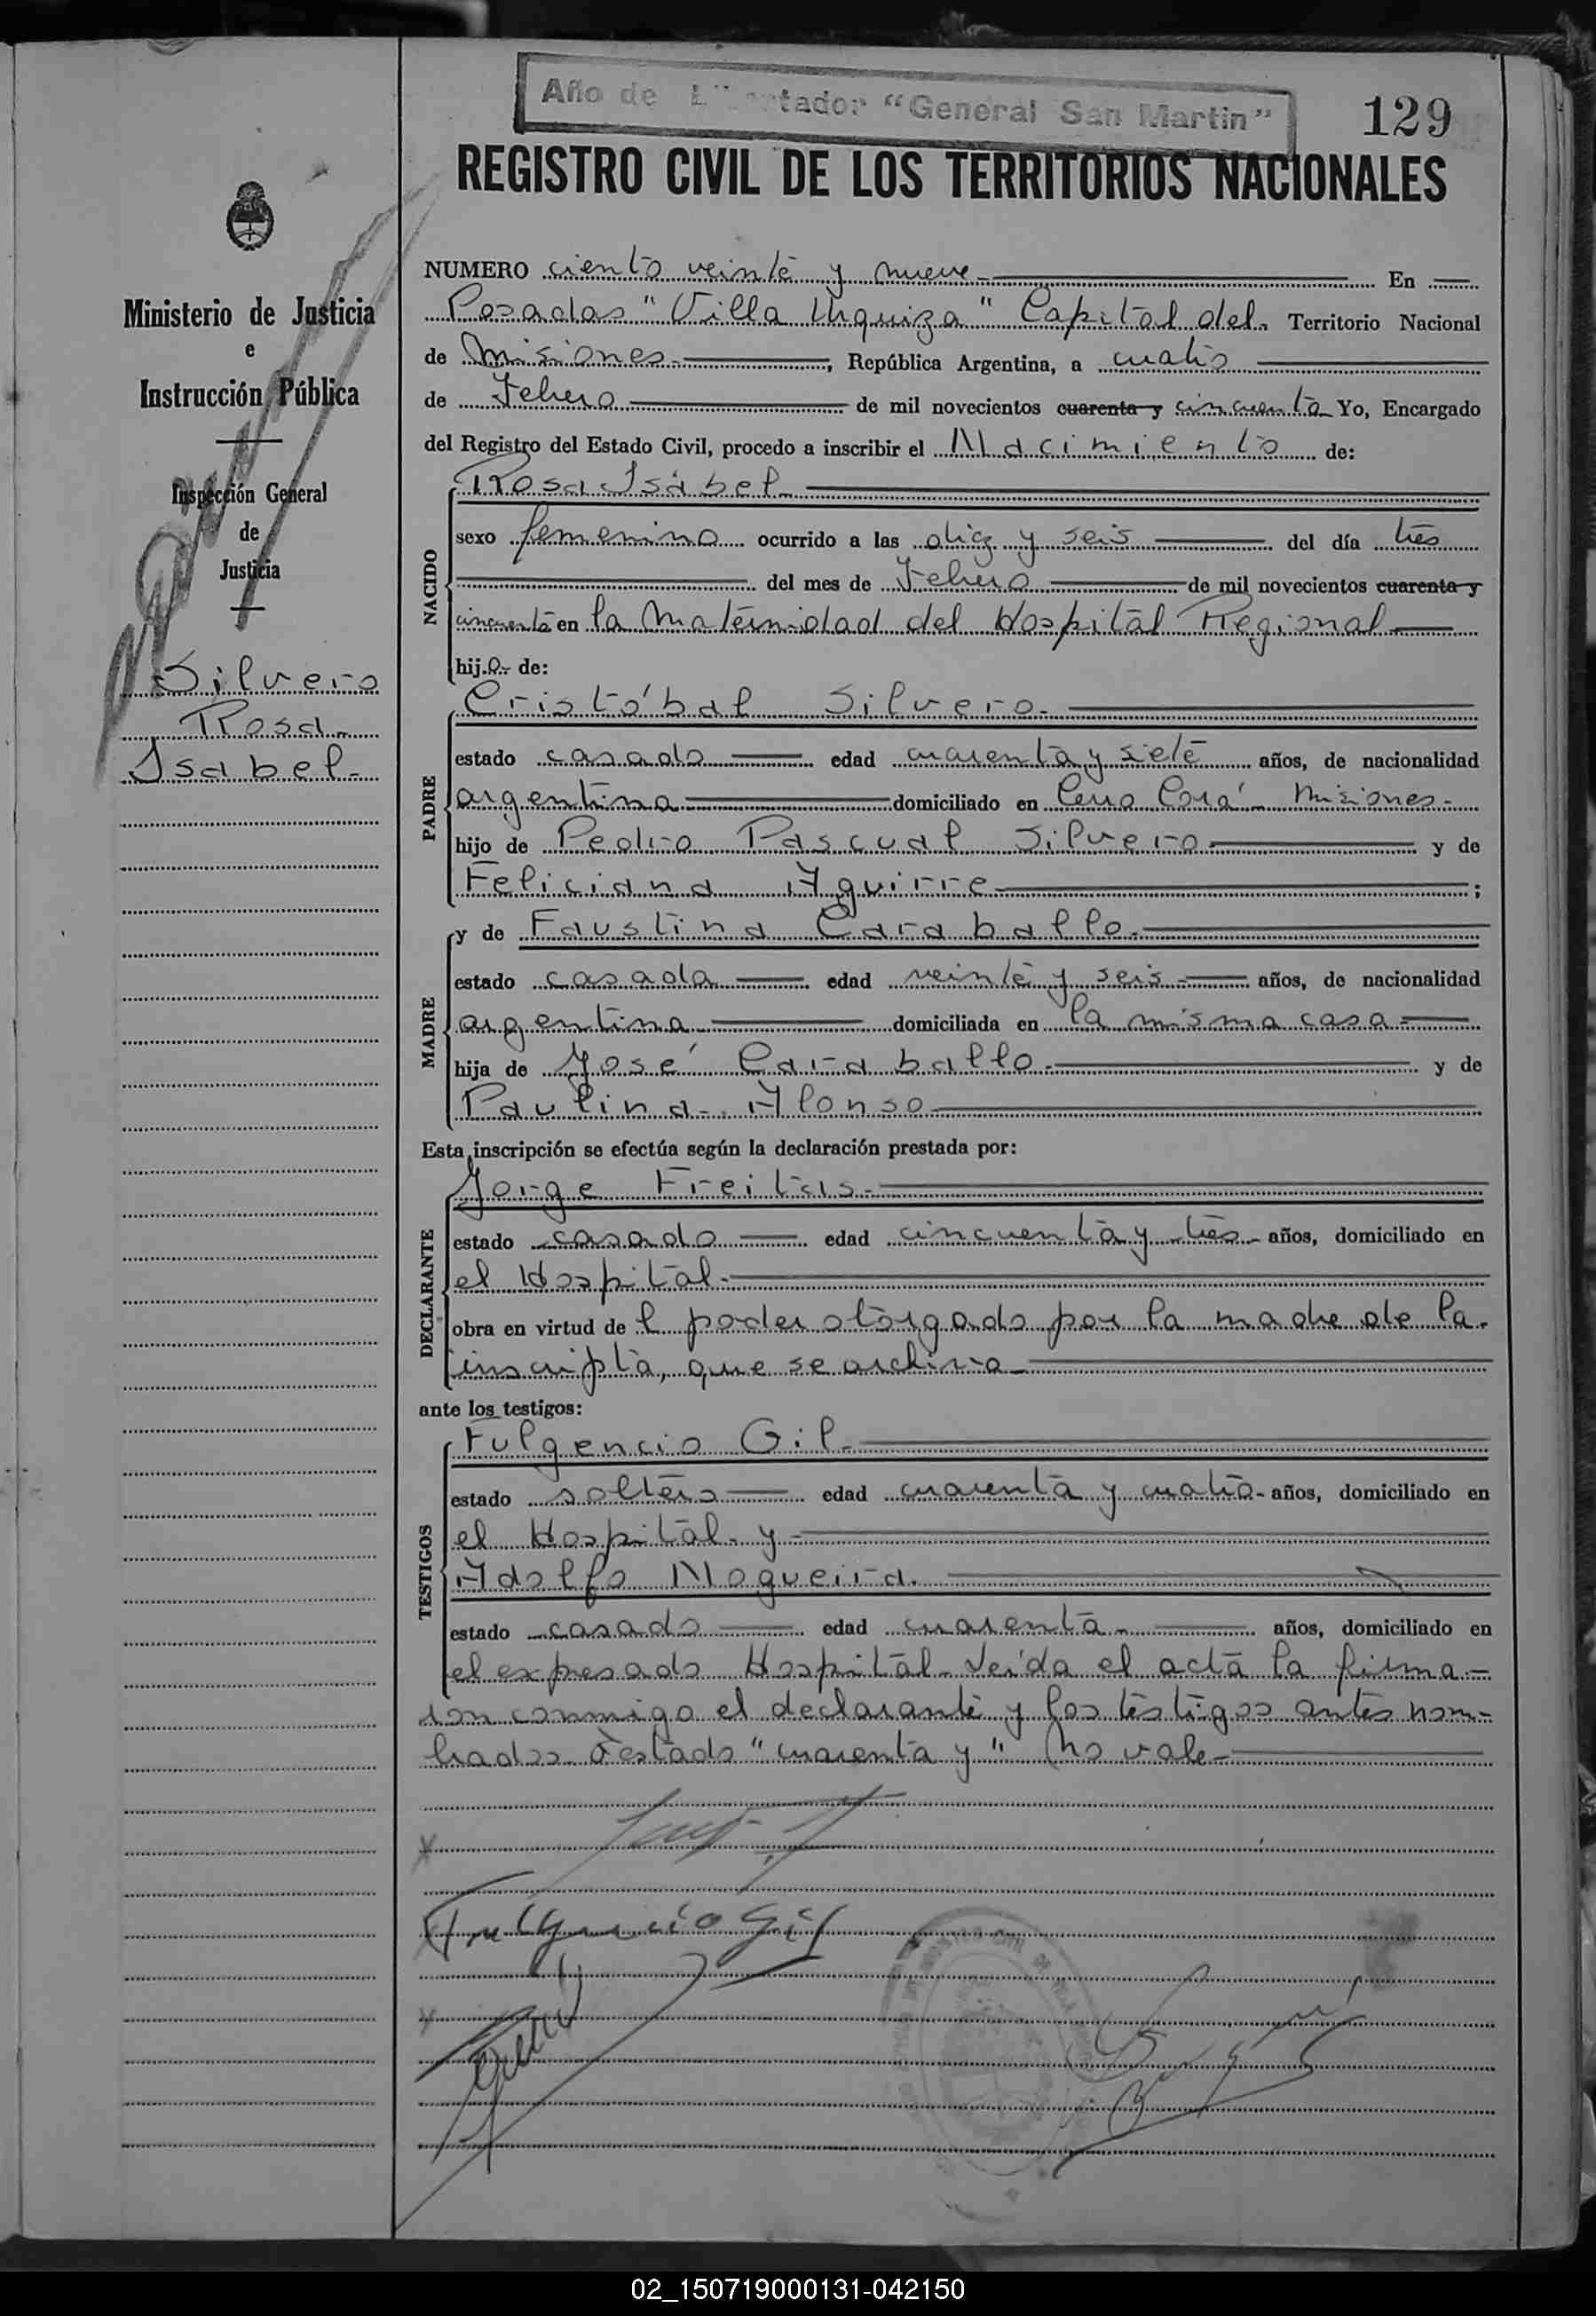 Año de Libertador "General San Martin"
129
REGISTRO CIVIL DE LOS TERRITORIOS NACIONALES
Ministerio de Justicia
e
Instrucción Pública
Inspección General
de
Justicia
Silvero
Rosa
Isabel.-
NUMERO ciento veinte y nueve En
Posadas "Villa Urquiza" Capital del Territorio Nacional
de Misiones, República Argentina, a cuatro
de Febrero de mil novecientos cuarenta y cincuenta Yo, Encargado
del Registro del Estado Civil, procedo a inscribir el Nacimiento de:
NACIDO
Rosa Isabel
sexo femenino ocurrido a las diez y seis del día tres
del mes de Febrero de mil novecientos cuarenta y
cincuenta en la Maternidad del Hospital Regional
hij.a de:
PADRE
Cristóbal Silvero.
estado casado edad cuarenta y siete años, de nacionalidad
argentina domiciliado en Cerro Corá - Misiones-
hijo de Pedro Pascual Silvero y de
Feliciana Aguirre ;
MADRE
y de Faustina Caraballo.
estado casada edad veinte y seis años, de nacionalidad
argentina domiciliada en la misma casa
hija de José Caraballo. y de
Paulina Alonso
Esta inscripción se efectúa según la declaración prestada por:
DECLARANTE
Jorge Freitas.
estado casado edad cincuenta y tres años, domiciliado en
el Hospital-
obra en virtud de l poder otorgado por la madre de la
inscripta, que se archiva
ante los testigos:
TESTIGOS
Fulgencio Gil
estado soltero edad cuarenta y cuatro años, domiciliado en
el Hospital y
Adolfo Nogueira.
estado casado edad cuarenta años, domiciliado en
el expresado Hospital- Leída el acta la firma-
ron conmigo el declarante y los testigos antes nom-
brados- Testado "cuarenta y" No vale-
Fulgencio Gil
02_150719000131-042150